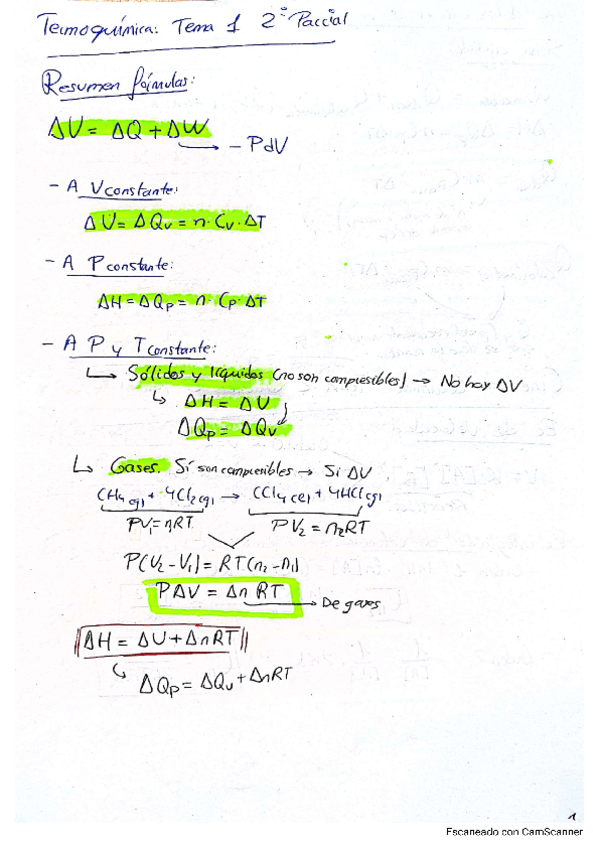 Termoquímica: Tema 1 2º Parcial
Resumen fórmulas:
ΔU = ΔQ + ΔW
→ - PdV
- A V constante:
ΔU = ΔQv = n · Cv · ΔT
- A P constante:
ΔH = ΔQp = n · Cp · ΔT
- A P y T constante:
↳ Sólidos y líquidos (no son compresibles) → No hay ΔV
↳ ΔH = ΔU
ΔQp = ΔQv
↳ Gases. Sí son compresibles → Sí ΔV
CH4(g) + 4Cl2(g) → CCl4(l) + 4HCl(g)
PV1 = n1RT PV2 = n2RT
P(V2 - V1) = RT(n2 - n1)
PΔV = Δn RT → De gases
ΔH = ΔU + ΔnRT
↳ ΔQp = ΔQv + ΔnRT
1
Escaneado con CamScanner